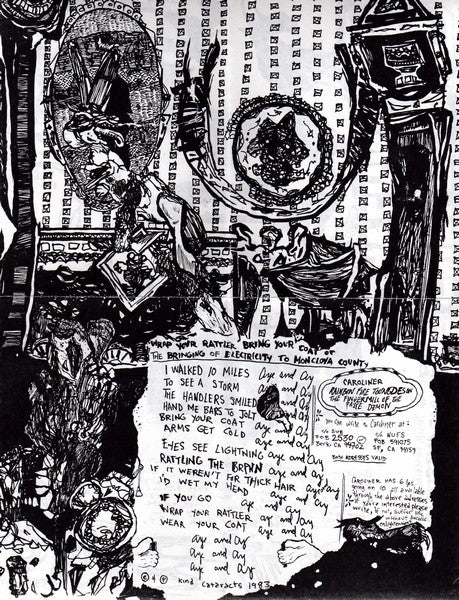 WRAP YOUR RATTLER BRING YOUR COAT or
THE BRINGING OF ELECTRICITY TO MONCLOVA COUNTY
I WALKED 10 MILES aye and ay
TO SEE A STORM aye and ay
THE HANDLERS SMILED
HAND ME BARS TO JOLT
BRING YOUR COAT aye
ARMS GET COLD aye and ay
EYES SEE LIGHTNING aye and ay
RATTLING THE BRAIN aye and ay
IF IT WEREN'T FOR THICK HAIR aye and ay
I'D WET MY HEAD aye and ay
IF YOU GO ay and ay
WRAP YOUR RATTLER ay and ay
WEAR YOUR COAT aye and ay
aye and ay
aye and ay
aye and ay
Kind Cataracts 1983
CAROLINER
RAINBOW FIRE
IN
THE FINGERMILL OF THE
DEMON
you can write to Caroliner at:
c/o SUB
POB 2530
Berk. CA 94702
c/o NUFS
POB 591075
SF, CA 94159
BOTH ADDRESSES VALID
CAROLINER HAS 6 lps
going on 10 all available
through the above addresses
if you're interested please
write
enlightenment